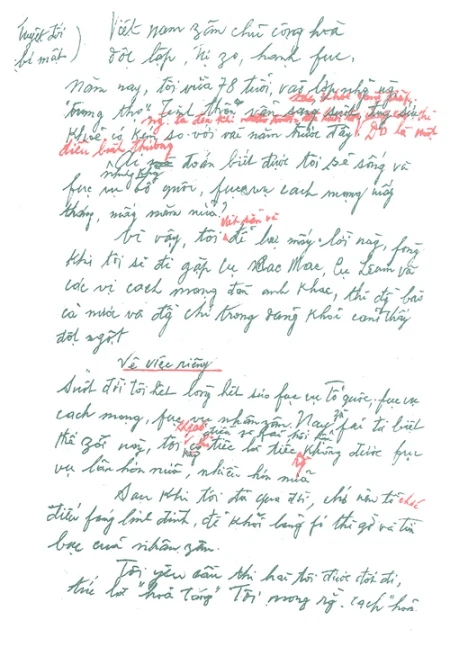 Tuyệt đối
bí mật)
Việt nam zân chủ cộng hoà
độc lập, tự zo, hạnh fúc.
Năm nay, tôi vừa 78 tuổi, vào lớp những ng.
"trung thọ". Tinh thần vẫn sáng suốt,
khoẻ có kém so với vài năm trước đây. Đó là một
điều bình thường
Nhưng Ai mà đoán biết được tôi sẽ sống và
fục vụ tổ quốc, fục vụ cách mạng mấy
tháng, mấy năm nữa?
Vì vậy, tôi viết sẵn và để lại mấy lời này, fòng
khi tôi sẽ đi gặp cụ Các Mác, Cụ Lênin và
các vị cách mạng đàn anh khác, thì đ.bào
cả nước và đ.chí trong đảng khỏi cảm thấy
đột ngột.
Về việc riêng
Suốt đời tôi hết lòng hết sức fục vụ Tổ quốc, fục vụ
cách mạng, fục vụ nhân zân. Nay zù fải từ biệt
thế zới này, tôi không có điều gì fải hối hận, chỉ
tiếc là tiếc không được fục
vụ lâu hơn nữa, nhiều hơn nữa
Sau khi tôi đã qua đời, chớ nên tổ chức
điếu fúng linh đình, để khỏi lãng fí thì giờ và tiền
bạc của nhân zân.
Tôi yêu cầu thi hài tôi được đốt đi,
tức là "hoả táng". Tôi mong rằng cách "hoả